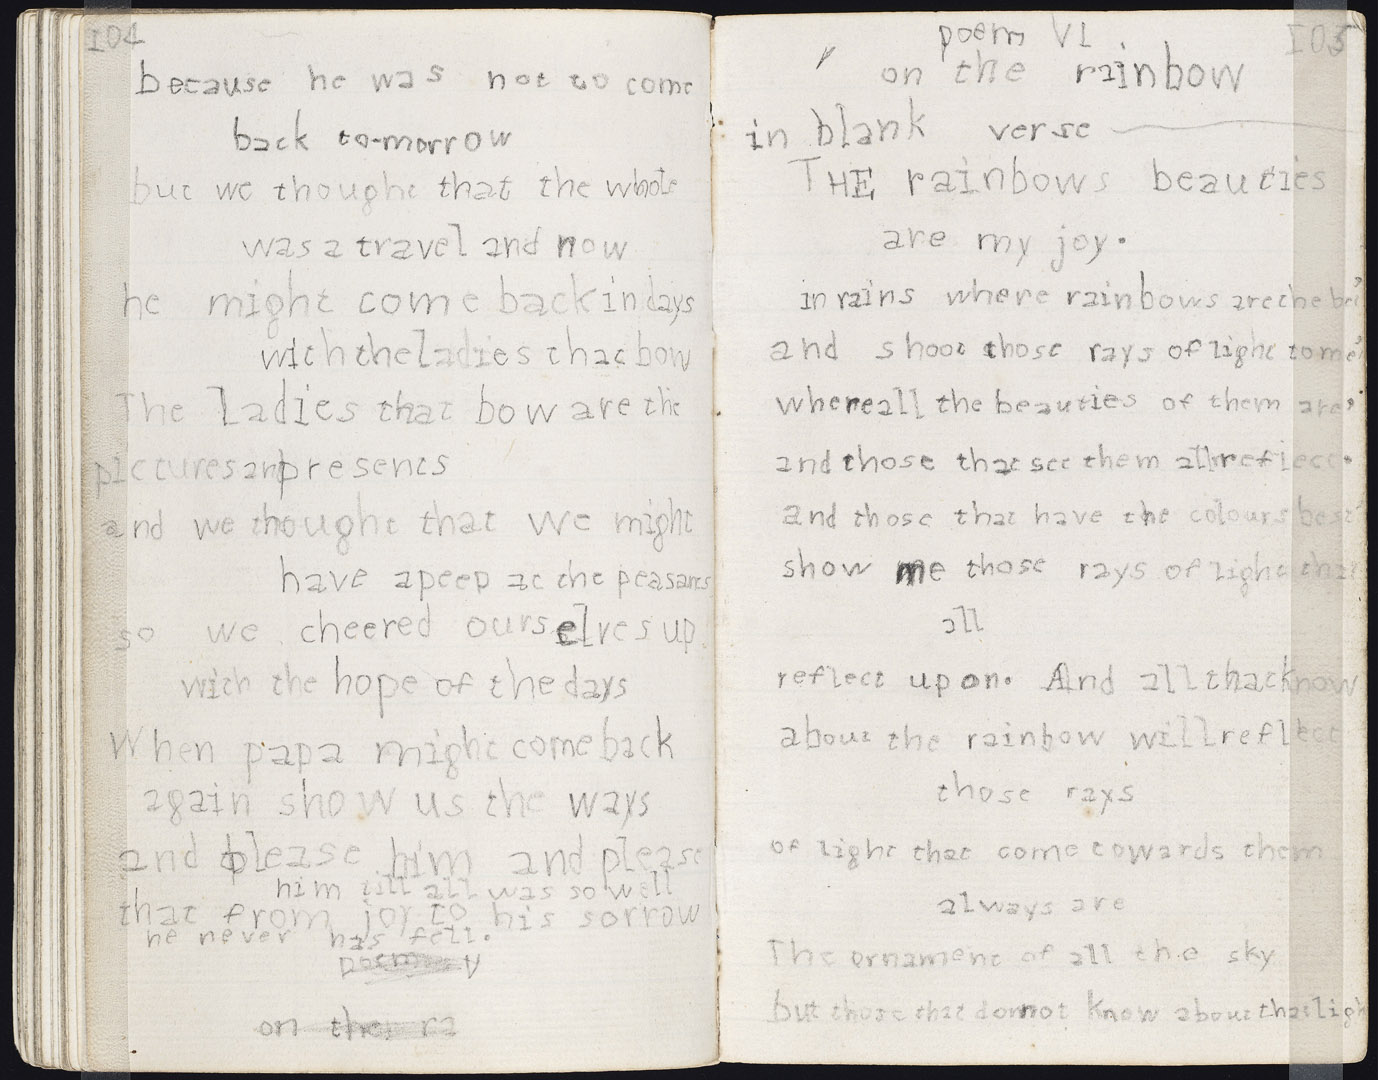 104
because he was not to come
back to-morrow
but we thought that the whole
was a travel and now
he might come back in days
with the ladies that bow
The ladies that bow are the
pictures and presents
and we thought that we might
have a peep at the peasants
so we cheered ourselves up.
with the hope of the days
When papa might come back
again show us the ways
and please him and please
him till all was so well
that from joy to his sorrow
he never has fell.
poem V
on the ra
105
poem VI
on the rainbow
in blank verse
THE rainbows beauties
are my joy.
in rains where rainbows are the
and shoot those rays of light to me,
where all the beauties of them are,
and those that see them all reflect.
and those that have the colours best
show me those rays of light that
all
reflect upon. And all that know
about the rainbow will reflect
those rays
of light that come towards them
always are
The ornament of all the sky
but those that do not know about that ligh